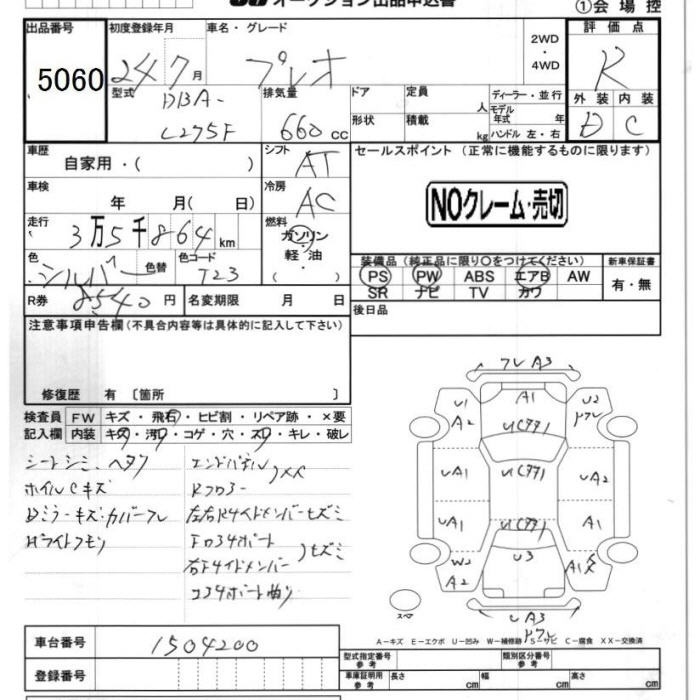 オークション出品申込書
①会場控
出品番号
5060
初度登録年月
24 7月
車名・グレード
プレオ
2WD
・
4WD
評価点
R
外装 内装
D C
型式
DBA-
L275F
排気量
660cc
ドア
形状
定員 人
積載 kg
ディーラー・並行
モデル年式 年
ハンドル 左・右
車歴
自家用・( )
シフト
AT
セールスポイント (正常に機能するものに限ります)
NOクレーム・売切
車検
年 月( 日)
冷房
AC
走行
3万5千864km
燃料
ガソリン
・
軽油
( )
色
シルバー
色替
色コード
T23
装備品(純正品に限り○をつけてください)
PS PW ABS エアB AW
SR ナビ TV カワ
新車保証書
有・無
R券
8540円
名変期限 月 日
後日品
注意事項申告欄(不具合内容等は具体的に記入して下さい)
修復歴 有 〔箇所 〕
検査員
記入欄
FW キズ・飛石・ヒビ割・リペア跡・×要
内装 キズ・汚れ・コゲ・穴・スレ・キレ・破レ
シートシミ、ヘタリ
ホイルCキズ
Dミラーキズ・カバーワレ
Hライトクモリ
エンドパネル
Rフロアー
XX
左右Rサイドメンバーヒズミ
右Fサイドメンバー
ヒズミ
コアサポート曲り
ワレ A3
U1
A2
A1
U2
U(アア)
UA1
U(アア)
UA2
UA1
U(アア)
A1
W2
A2
U3
A1
スペ
UA3
A-キズ E-エクボ U-凹み W-補修跡 S-サビ C-腐食 XX-交換済
車台番号
1504200
登録番号
型式指定番号
参考
類別区分番号
参考
車庫証明用
参考
長さ cm
幅 cm
高さ cm